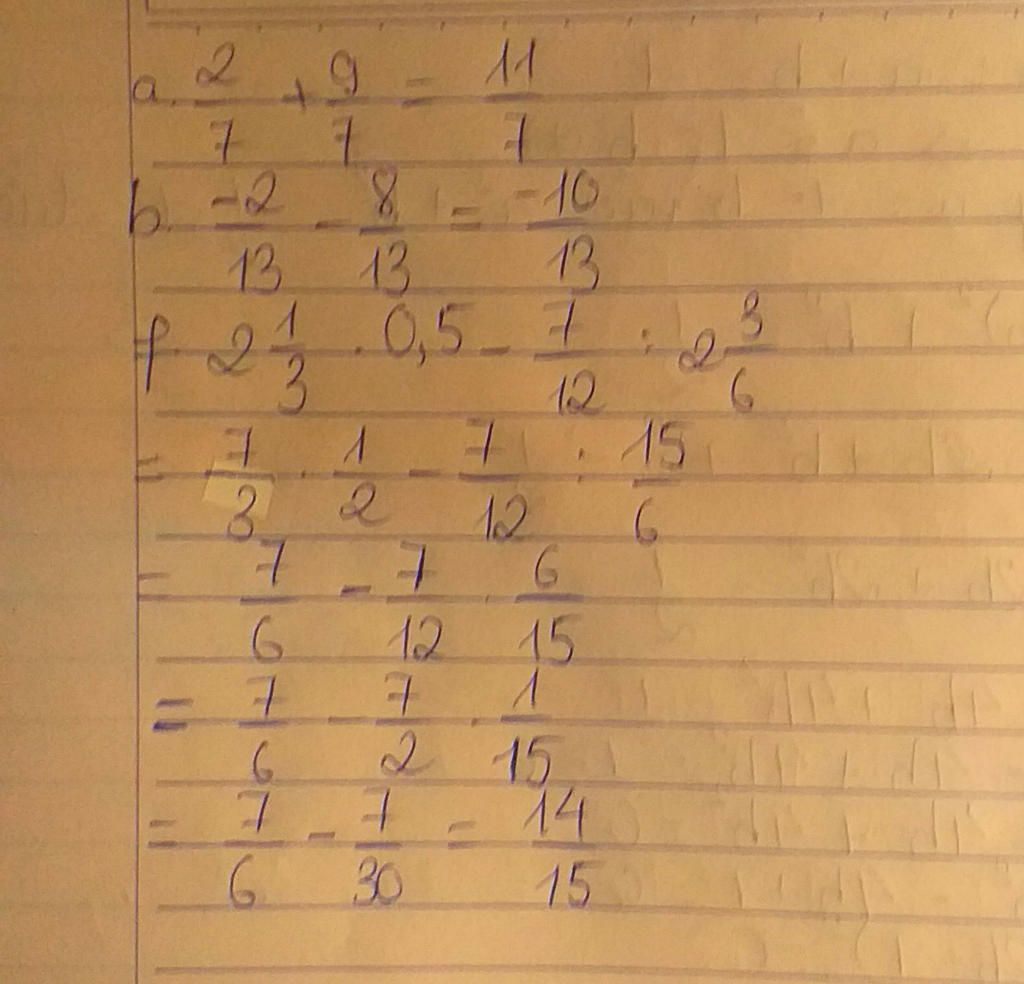 a. 2/7 + 9/7 = 11/7
b. -2/13 - 8/13 = -10/13
f. 2 1/3 . 0,5 - 7/12 : 2 3/6
= 7/3 . 1/2 - 7/12 : 15/6
= 7/6 - 7/12 . 6/15
= 7/6 - 7/2 . 1/15
= 7/6 - 7/30 = 14/15